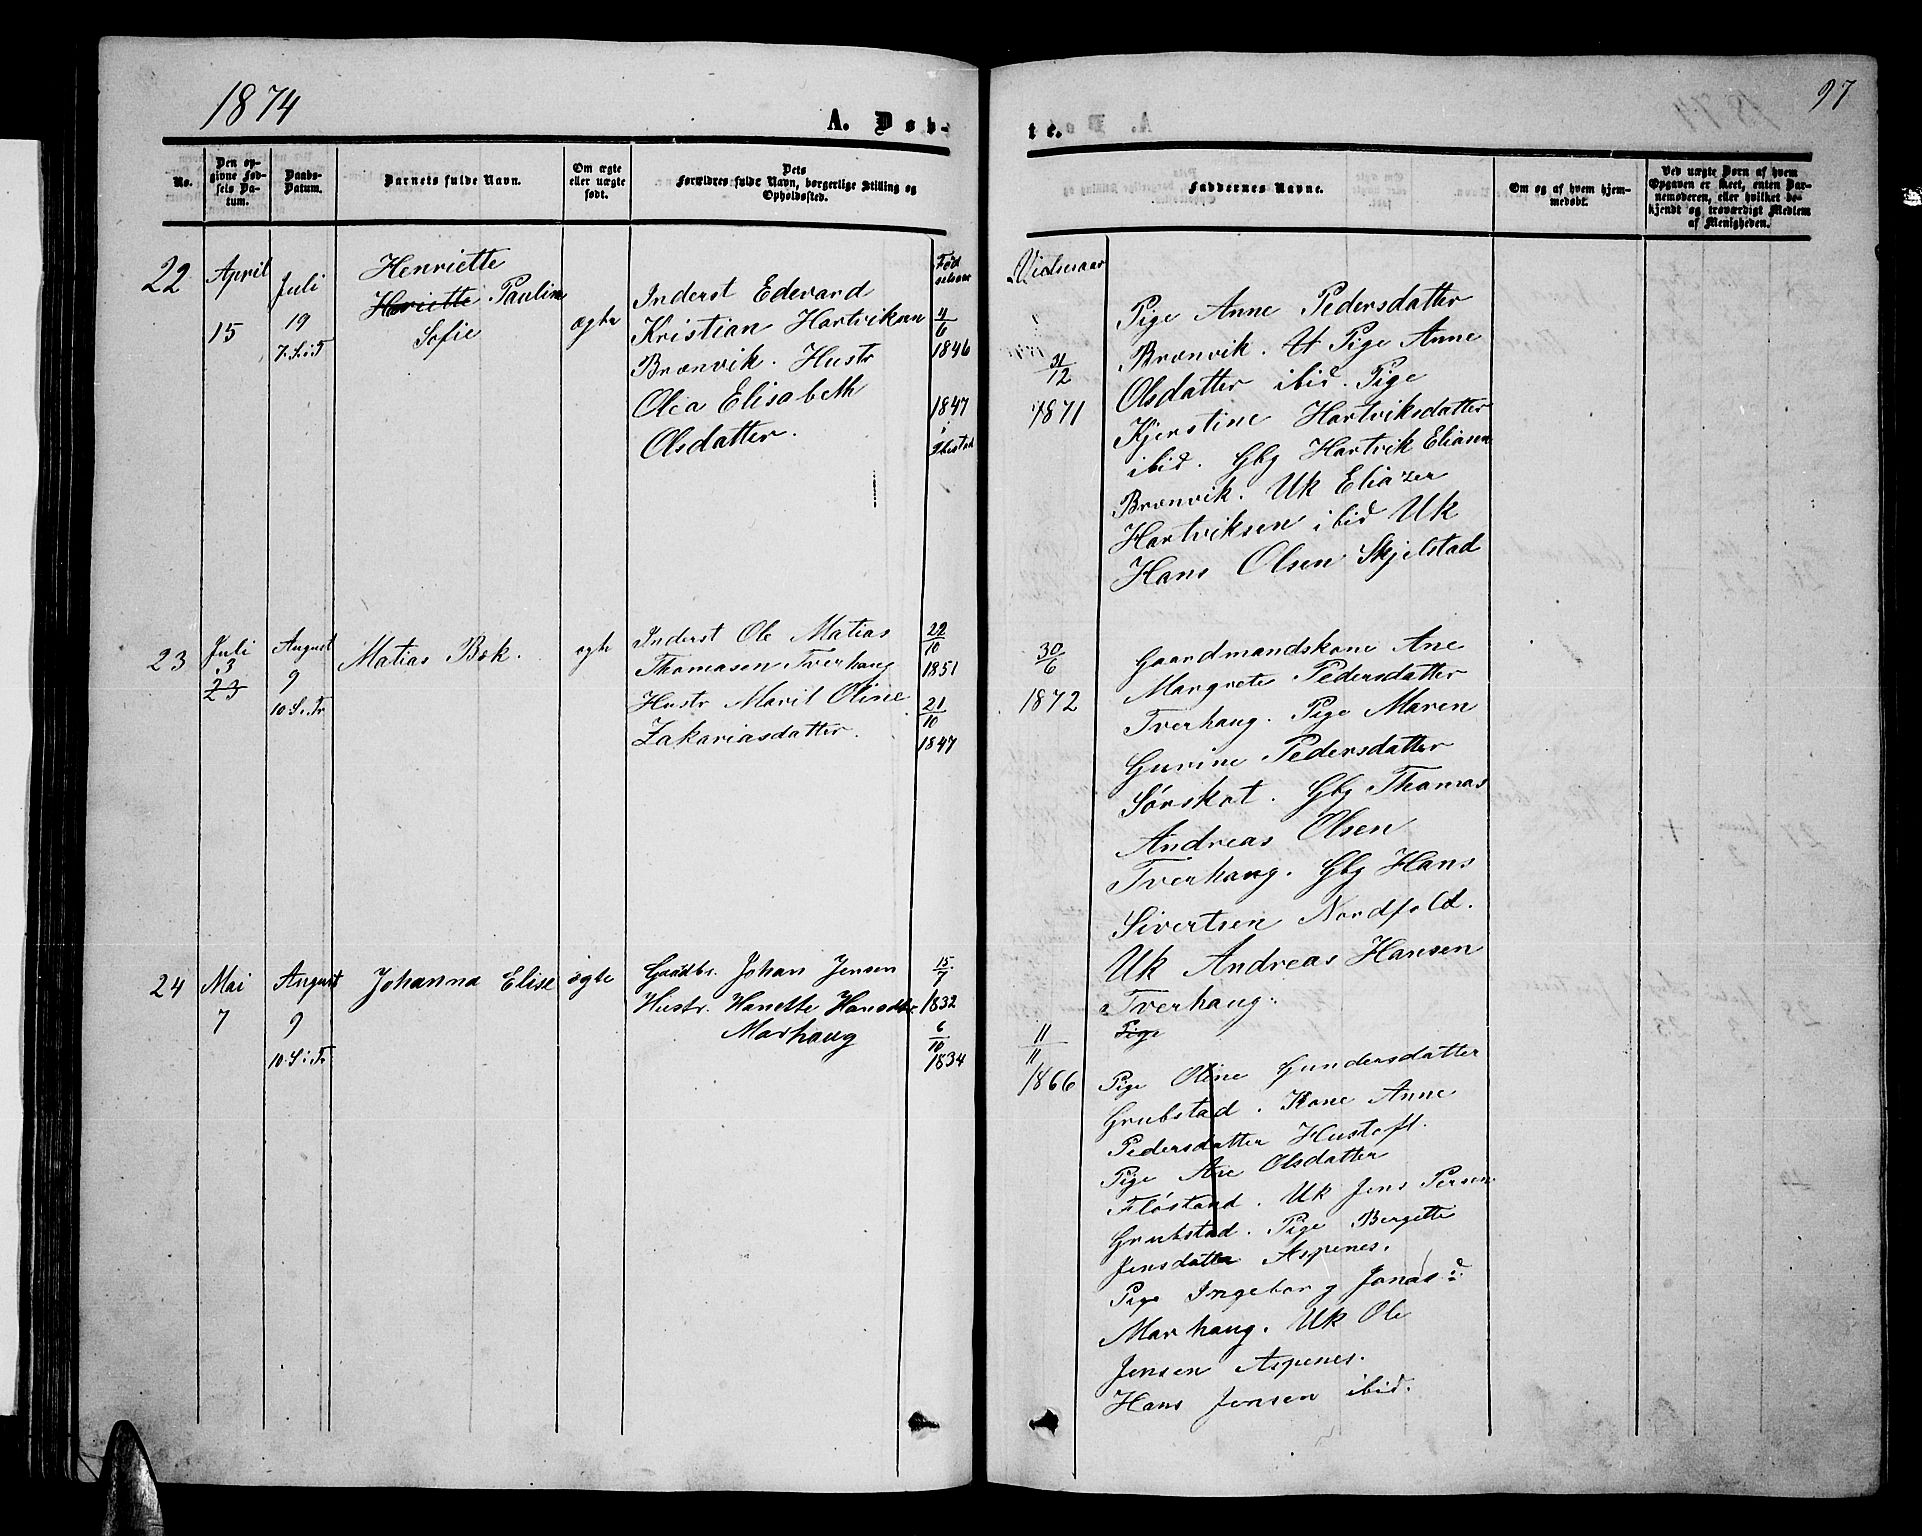 1874
97
A. Døb-
te.
No.
Den op-
givne Fød-
sels Da-
tum.
Daabs-
Datum.
Barnets fulde Navn.
Om ægte
eller uægte
født.
Dets
Forældres fulde Navn, borgerlige Stilling og
Opholdssted.
Faddernes Navne.
Om og af hvem hjem-
medøbt.
Ved uægte Børn af hvem
Opgaven er skeet, enten Bar-
nemoderen, eller hvilket be-
kjendt og troværdigt Medlem
af Menigheden.
22
April
15
Juli
19
7. S. i. T
Henriette
Henriette Pauline
Sofie
ægte
Inderst Edevard
Kristian Hartviksen
Brænvik. Hustr
Olea Elisabeth
Olsdatter.
Fød
selsaar
4/6
1846
1847
i
Ibestad
Vielsesaar
31/12
1871
Pige Anne Pedersdatter
Brænvik. Pige Anne
Olsdatter ibid. Pige
Kjerstine Hartviksdatter
ibid. Gbg Hartvik Eliasen
Brænvik. Uk Eliazer
Hartviksen ibid Uk
Hans Olsen Skjelstad
23
Juli
3
23
August
9
10. S. i. Tr
Matias Bæk.
ægte
Inderst Ole Matias
Thomasen Tverhaug
Hustr Marit Oline
Zakariasdatter.
22/10
1851
21/10
1847
30/6
1872
Gaardmandskone Ane
Margrete Pedersdatter
Tverhaug. Pige Maren
Gurine Pedersdatter
Sørskot. Gbg Thomas
Andreas Olsen
Tverhaug. Gbg Hans
Sivertsen Nordfold.
Uk Andreas Hansen
Tverhaug.
24
Mai
7
August
9
10. S. i. Tr
Johanna Elise
ægte
Gaardbr. Johan Jensen
Hustr. Hanette Hansdtr
Marhaug
15/7
1832
6/10
1834
11/11
1866
Pige
Pige Oline Gundersdatter
Grubstad. Kone Anne
Pedersdatter Hustoft.
Pige Ane Olsdatter
Fløstand. Uk Jens Persen
Grubstad. Pige Bergette
Jensdatter Aspenes.
Pige Ingeborg Jonasd
Marhaug. Uk Ole
Jensen Aspenes.
Hans Jensen ibid.